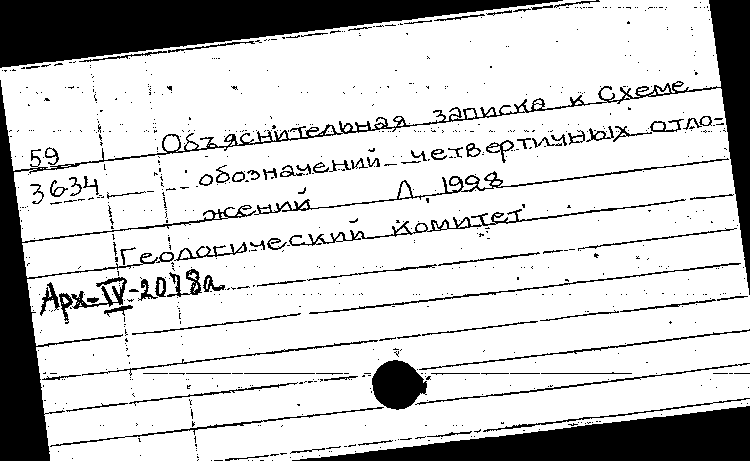 59 Объяснительная записка к схеме
3634 обозначений четвертичных отло-
жений Л., 1928
Геологический комитет
Арх-IV-2078а